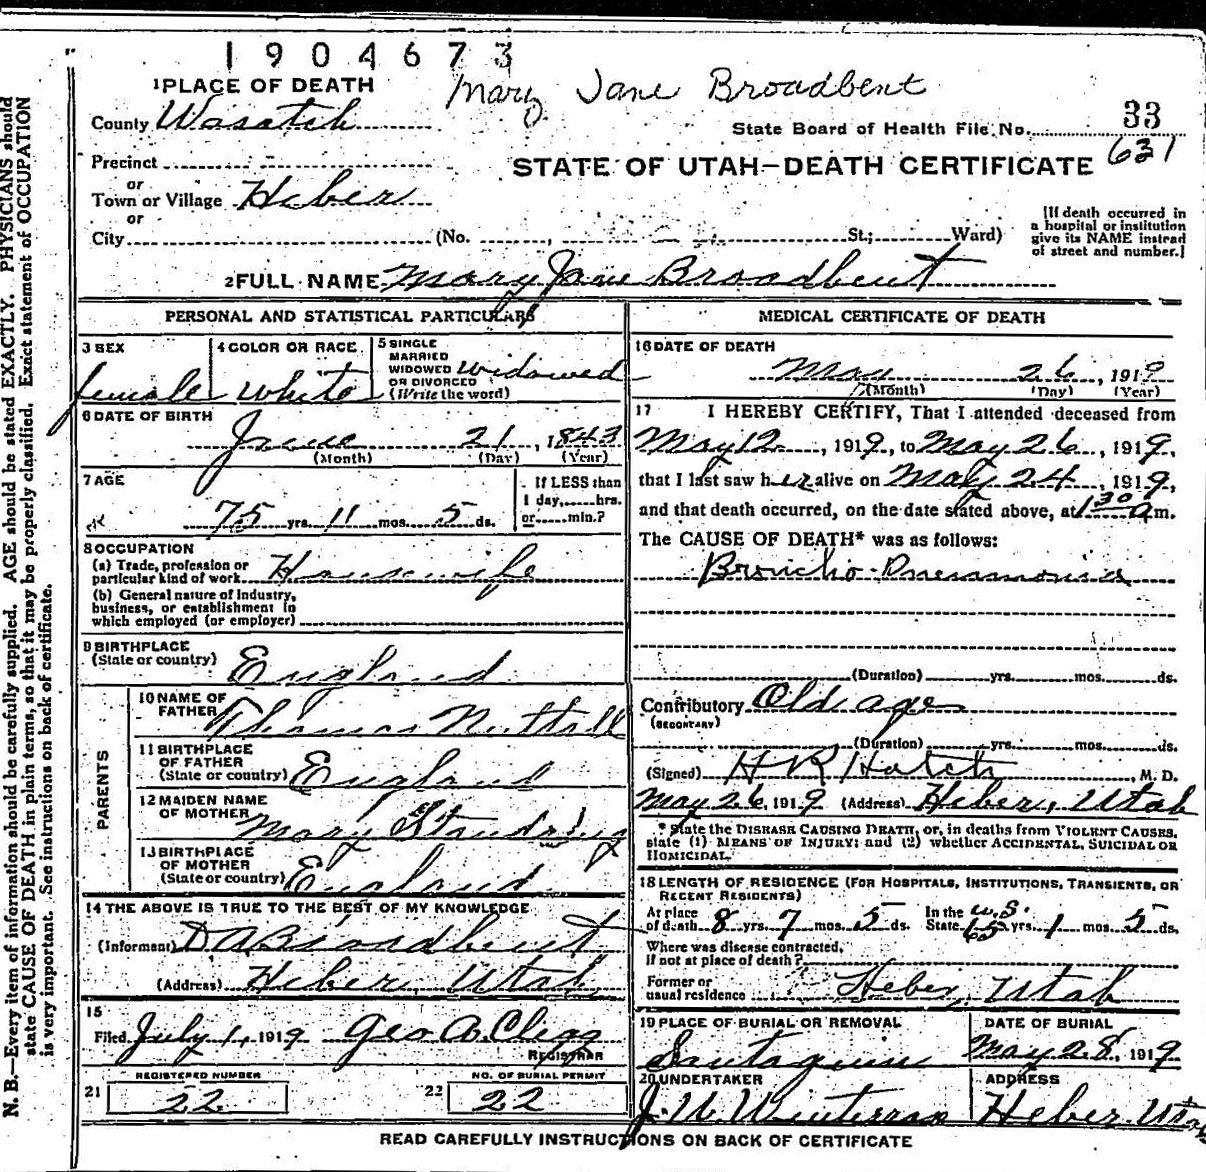 1904673
Mary Jane Broadbent
1 PLACE OF DEATH
County Wasatch
State Board of Health File No. 33
631
Precinct
or
STATE OF UTAH—DEATH CERTIFICATE
Town or Village Heber
or
City (No. , St.; Ward)
[If death occurred in
a hospital or institution
give its NAME instead
of street and number.]
2 FULL NAME Mary Jane Broadbent
PERSONAL AND STATISTICAL PARTICULARS
3 SEX
female
4 COLOR OR RACE
white
5 SINGLE
MARRIED
WIDOWED
OR DIVORCED
(Write the word)
widowed
6 DATE OF BIRTH
June 21, 1843
(Month) (Day) (Year)
7 AGE
75 yrs. 11 mos. 5 ds.
If LESS than
1 day, hrs.
or min.?
8 OCCUPATION
(a) Trade, profession or
particular kind of work Housewife
(b) General nature of industry,
business, or establishment in
which employed (or employer)
9 BIRTHPLACE
(State or country) England
PARENTS
10 NAME OF
FATHER Thomas Nuttall
11 BIRTHPLACE
OF FATHER
(State or country) England
12 MAIDEN NAME
OF MOTHER Mary
13 BIRTHPLACE
OF MOTHER
(State or country) England
14 THE ABOVE IS TRUE TO THE BEST OF MY KNOWLEDGE
(Informant) D A Broadbent
(Address) Heber, Utah
15
Filed July 1, 1919 Geo A. Clegg
REGISTRAR
REGISTERED NUMBER
21 22
NO. OF BURIAL PERMIT
22 22
MEDICAL CERTIFICATE OF DEATH
16 DATE OF DEATH
May 26, 1919
(Month) (Day) (Year)
17 I HEREBY CERTIFY, That I attended deceased from
May 12, 1919, to May 26, 1919,
that I last saw her alive on May 24, 1919,
and that death occurred, on the date stated above, at 1 30 a m.
The CAUSE OF DEATH* was as follows:
Broncho-Pneumonia
(Duration) yrs. mos. ds.
Contributory Old age
(SECONTARY)
(Duration) yrs. mos. ds.
(Signed) H R Hatch, M. D.
May 26, 1919 (Address) Heber, Utah
* State the DISEASE CAUSING DEATH, or, in deaths from VIOLENT CAUSES,
state (1) MEANS OF INJURY; and (2) whether ACCIDENTAL, SUICIDAL OR
HOMICIDAL.
18 LENGTH OF RESIDENCE (FOR HOSPITALS, INSTITUTIONS, TRANSIENTS, OR
RECENT RESIDENTS)
At place
of death 8 yrs. 7 mos. 5 ds.
In the U.S.
State 65 yrs. 1 mos. 5 ds.
Where was disease contracted,
if not at place of death?
Former or
usual residence Heber, Utah
19 PLACE OF BURIAL OR REMOVAL
Santaquin
DATE OF BURIAL
May 28, 1919
20 UNDERTAKER
J. W. Winterrose
ADDRESS
Heber, Utah
READ CAREFULLY INSTRUCTIONS ON BACK OF CERTIFICATE
N. B.—Every item of information should be carefully supplied. AGE should be stated EXACTLY. PHYSICIANS should
state CAUSE OF DEATH in plain terms, so that it may be properly classified. Exact statement of OCCUPATION
is very important. See instructions on back of certificate.